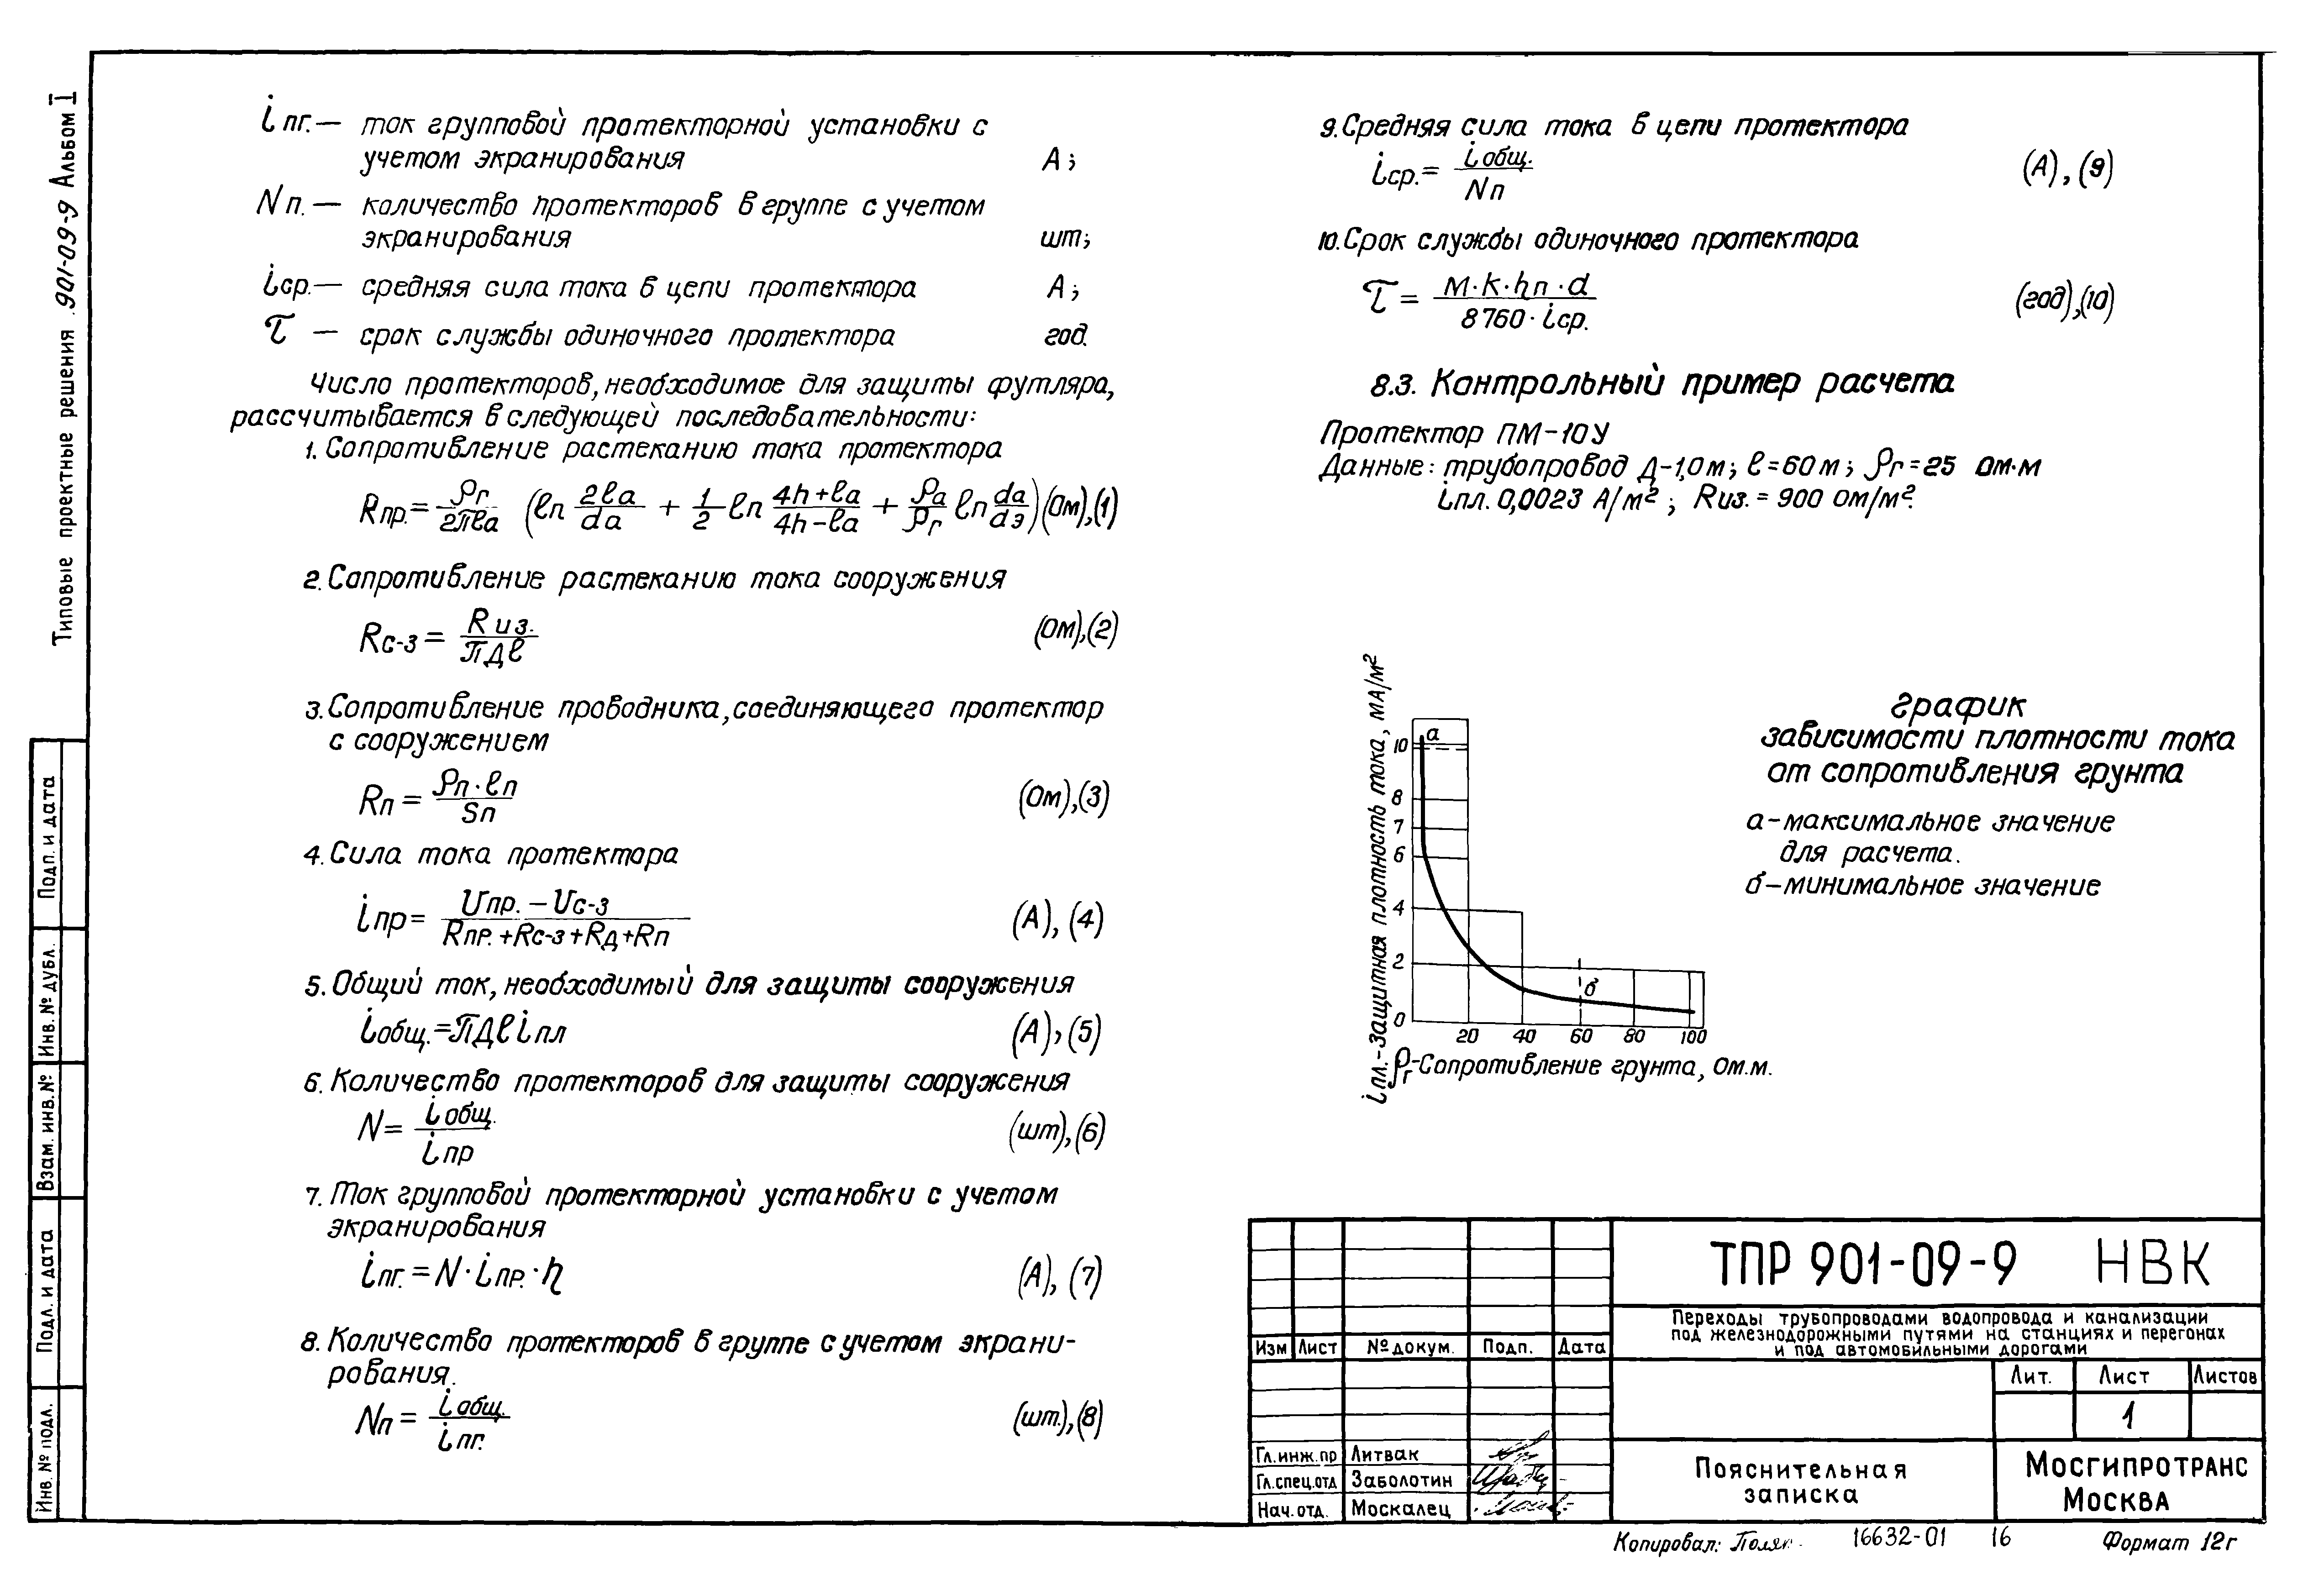 Типовые проектные решения 901-09-9 Альбом I
iпг. — ток групповой протекторной установки с
учетом экранирования А;
Nп. — количество протекторов в группе с учетом
экранирования шт;
iср. — средняя сила тока в цепи протектора А;
τ — срок службы одиночного протектора год.
Число протекторов, необходимое для защиты футляра,
рассчитывается в следующей последовательности:
1. Сопротивление растеканию тока протектора
Rпр. = ρг/2πℓа (ℓn 2ℓа/dа + 1/2 ℓn 4h+ℓа/4h-ℓа + ρа/ρг ℓn dа/dэ) (Ом), (1)
2. Сопротивление растеканию тока сооружения
Rс-з = Rиз./πДℓ (Ом), (2)
3. Сопротивление проводника, соединяющего протектор
с сооружением
Rп = ρп·ℓп/Sп (Ом), (3)
4. Сила тока протектора
iпр = Uпр. - Uс-з/Rпр. + Rс-з + Rд + Rп (А), (4)
5. Общий ток, необходимый для защиты сооружения
iобщ. = πДℓiпл (А), (5)
6. Количество протекторов для защиты сооружения
N = iобщ./iпр (шт), (6)
7. Ток групповой протекторной установки с учетом
экранирования
iпг. = N·iпр.·η (А), (7)
8. Количество протекторов в группе с учетом экрани-
рования.
Nп = iобщ./iпг. (шт.), (8)
9. Средняя сила тока в цепи протектора
iср. = iобщ./Nп (А), (9)
10. Срок службы одиночного протектора
τ = М·К·hп·d/8760·iср. (год), (10)
8.3. Контрольный пример расчета
Протектор ПМ-10У
Данные: трубопровод Д-1,0м; ℓ=60м; ρг=25 Ом·м
iпл. 0,0023 А/м²; Rиз. = 900 ом/м².
график
зависимости плотности тока
от сопротивления грунта
а-максимальное значение
для расчета.
б-минимальное значение
iпл.-Защитная плотность тока, МА/м²
10
8
7
6
4
2
0
а
б
20 40 60 80 100
ρг-Сопротивление грунта, Ом.м.
ТПР 901-09-9 НВК
Переходы трубопроводами водопровода и канализации
под железнодорожными путями на станциях и перегонах
и под автомобильными дорогами
Изм Лист № докум. Подп. Дата
Лит. Лист Листов
1
Гл.инж.пр Литвак
Гл.спец.отд Заболотин
Нач.отд. Москалец
Пояснительная
записка
Мосгипротранс
Москва
Копировал: Поляк 16632-01 16 Формат 12г
Подп. и дата
Инв. № дубл.
Взам. инв. №
Подп. и дата
Инв. № подл.